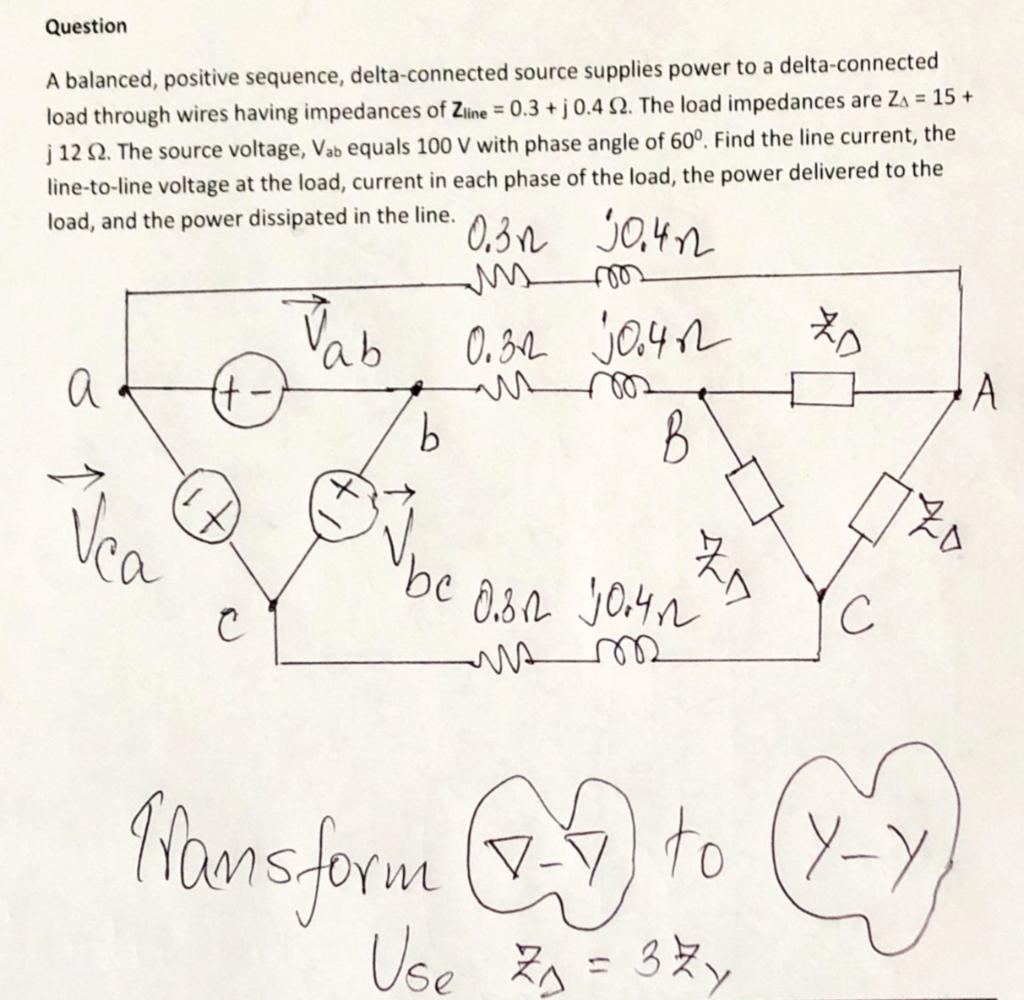 Question
A balanced, positive sequence, delta-connected source supplies power to a delta-connected
load through wires having impedances of Zline = 0.3 + j 0.4 Ω. The load impedances are ZΔ = 15 +
j 12 Ω. The source voltage, Vab equals 100 V with phase angle of 60⁰. Find the line current, the
line-to-line voltage at the load, current in each phase of the load, the power delivered to the
load, and the power dissipated in the line.
0.3Ω j0.4Ω
Vab 0.3Ω j0.4Ω ZΔ
a + - A
b B
- + + -
Vca Vbc ZΔ ZΔ
0.3Ω j0.4Ω
c C
Transform ∇-∇ to Y-Y
Use ZΔ = 3ZY